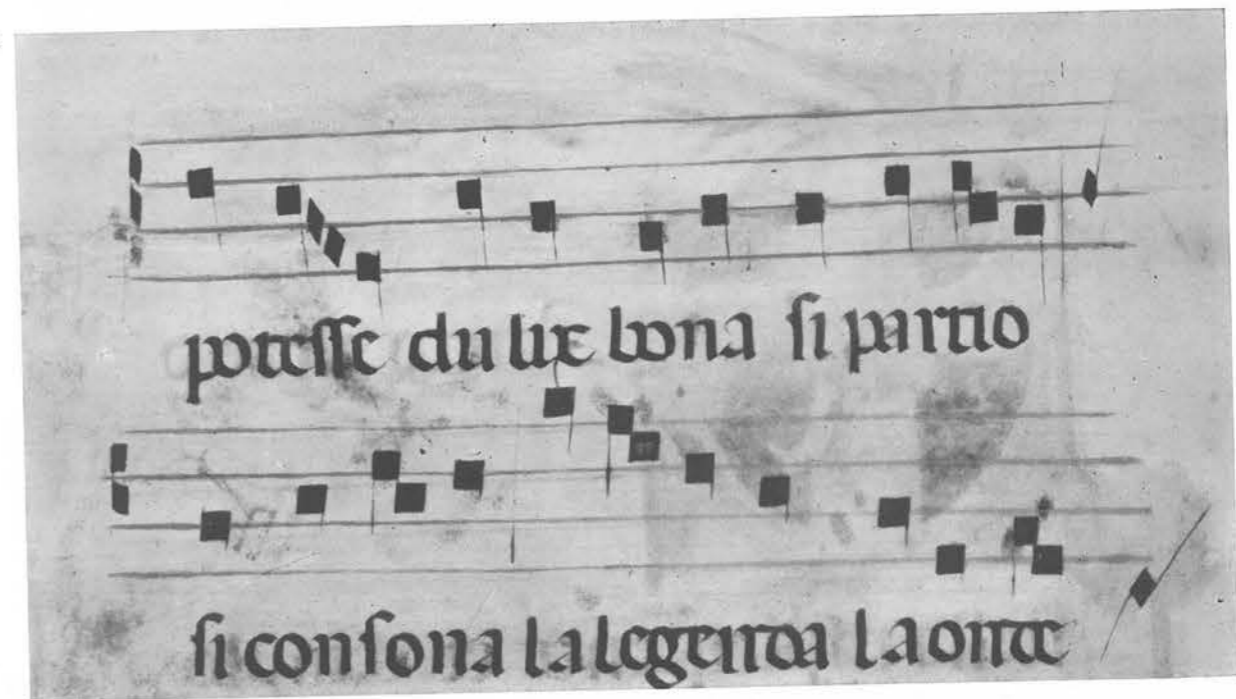 poteſſe du luce bona ſi partio
ſi conſona la legenda la onde